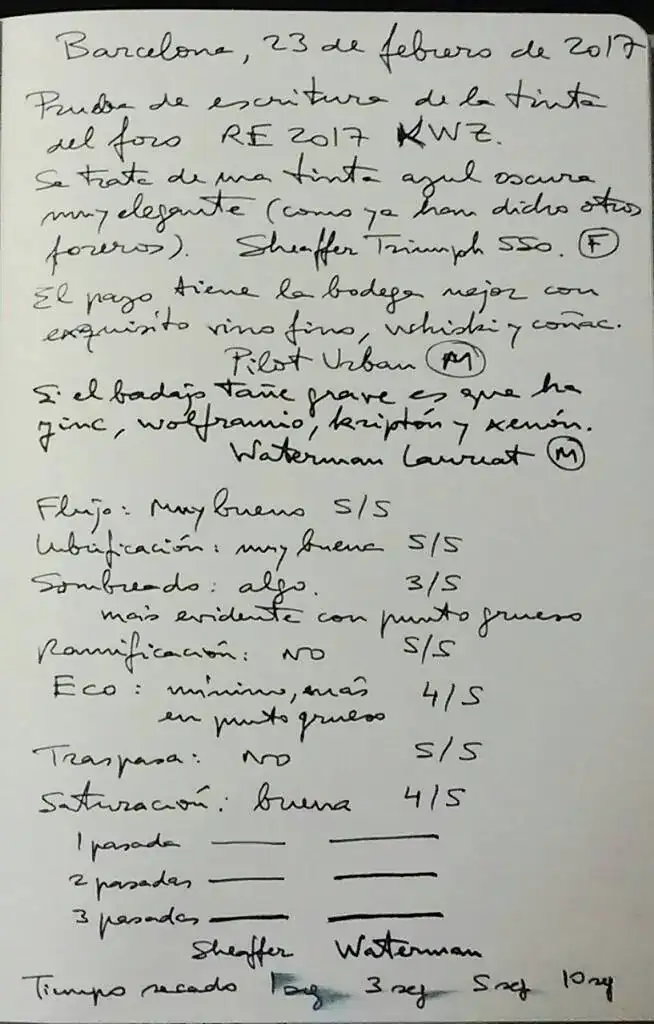 Barcelona, 23 de febrero de 2017
Prueba de escritura de la tinta
del foro RE 2017 KWZ.
Se trata de una tinta azul oscura
muy elegante (como ya han dicho otros
foreros). Sheaffer Triumph 550. F
El pazo tiene la bodega mejor con
exquisito vino fino, whiski y coñac.
Pilot Urban M
Si el badajo tañe grave es que ha
zinc, wolframio, kriptón y xenón.
Waterman Laureat M
Flujo: Muy bueno 5/5
Lubrificación: muy buena 5/5
Sombreado: algo. 3/5
más evidente con punto grueso
Ramificación: NO 5/5
Eco: mínimo, más 4/5
en punto grueso
Traspasa: NO 5/5
Saturación: buena 4/5
1 pasada
2 pasadas
3 pasadas
Sheaffer Waterman
Tiempo secado 1 seg 3 seg 5 seg 10 sg